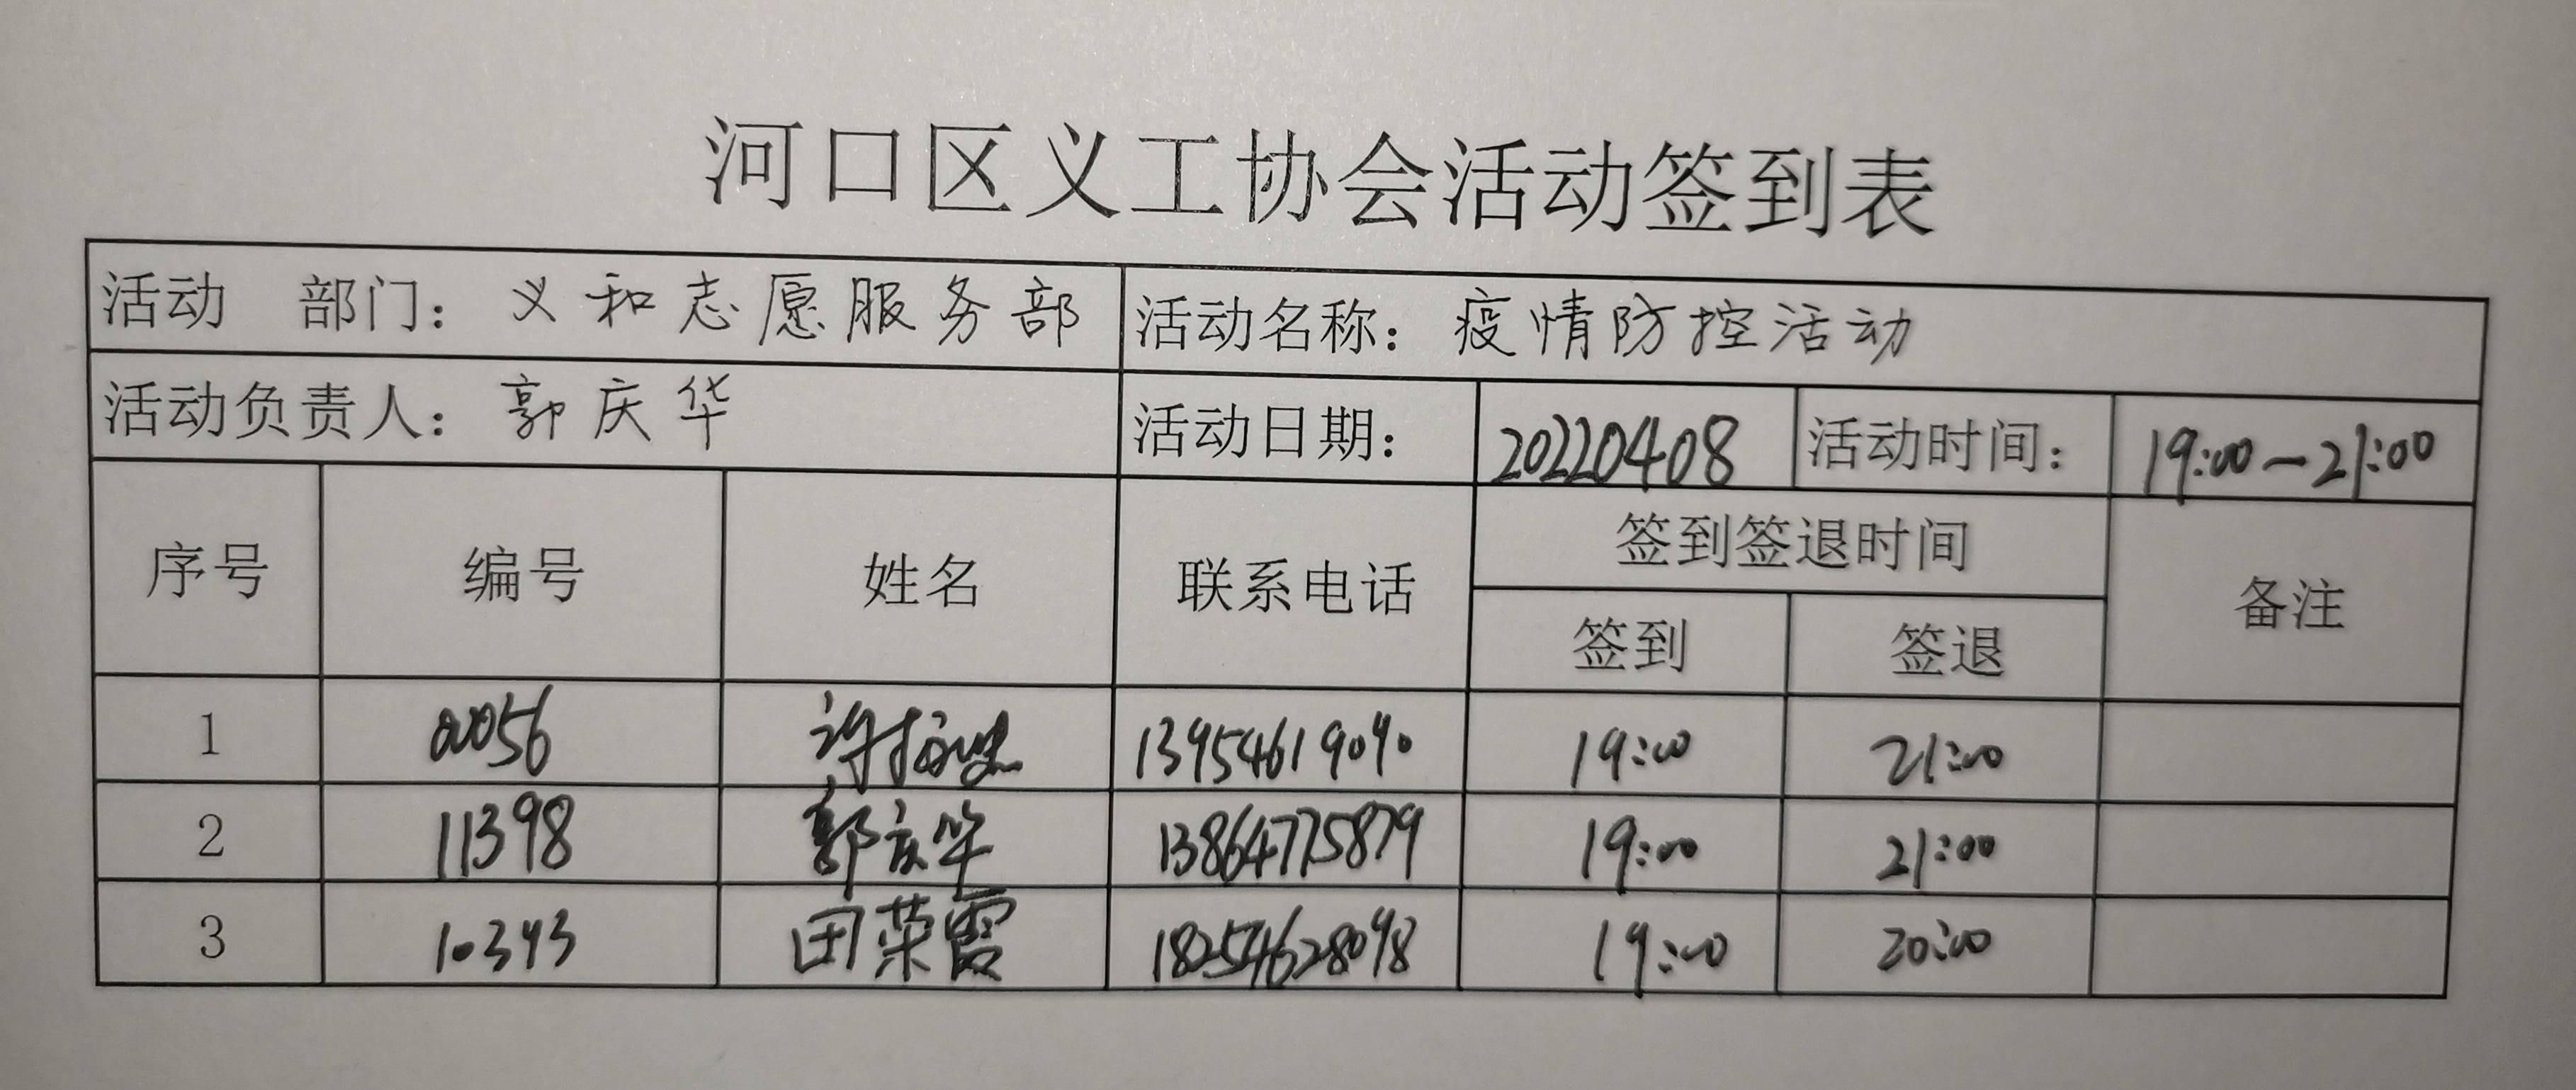 河口区义工协会活动签到表
活动 部门：义和志愿服务部 活动名称：疫情防控活动
活动负责人：郭庆华 活动日期： 20220408 活动时间： 19:00-21:00
序号 编号 姓名 联系电话 签到签退时间 备注
签到 签退
1 00056 许 13954619090 19:00 21:00
2 11398 郭庆华 13864775879 19:00 21:00
3 10343 田荣霞 18254628098 19:00 20:00